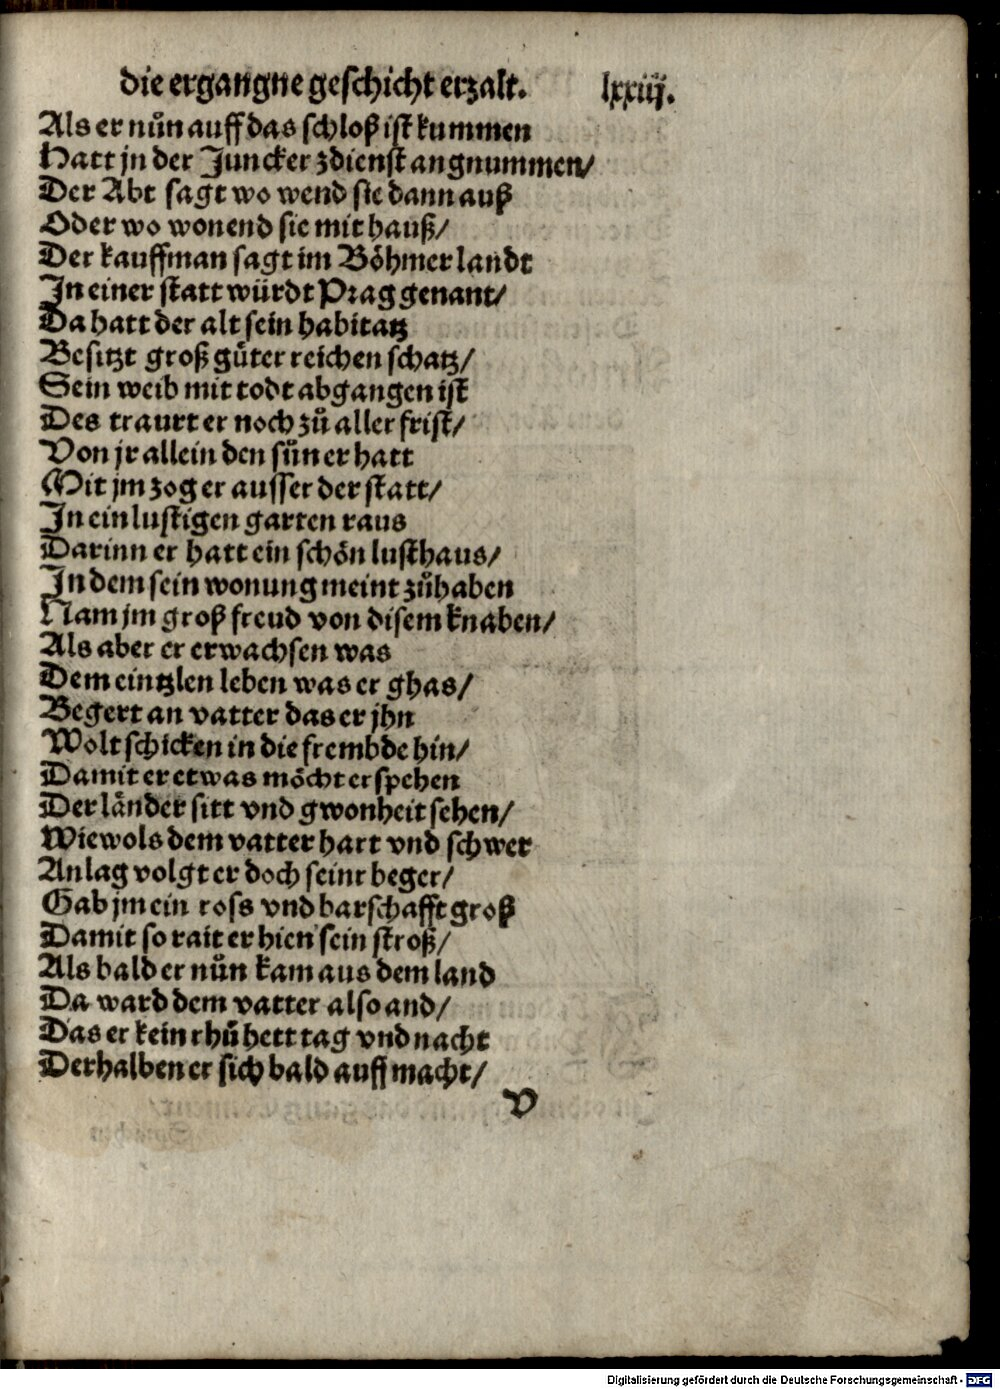 die ergangne geschicht erzalt. lxxiij.
Als er nůn auff das schloß ist kummen
Hatt jn der Juncker zdienst angnummen/
Der Abt sagt wo wend sie dann auß
Oder wo wonend sie mit hauß/
Der kauffman sagt im Böhmer landt
In einer statt würdt Prag genant/
Da hatt der alt sein habitatz
Besitzt groß güter reichen schatz/
Sein weib mit todt abgangen ist
Des traurt er noch zů aller frist/
Von jr allein den sůn er hatt
Mit jm zog er ausser der statt/
In ein lustigen garten raus
Darinn er hatt ein schön lusthaus/
In dem sein wonung meint zůhaben
Nam jm groß freud von disem knaben/
Als aber er erwachsen was
Dem eintzlen leben was er ghas/
Begert an vatter das er jhn
Wolt schicken in die frembde hin/
Damit er etwas möcht erspehen
Der länder sitt vnd gwonheit sehen/
Wiewols dem vatter hart vnd schwer
Anlag volgt er doch seinr beger/
Gab jm ein ross vnd barschafft groß
Damit so rait er hien sein stroß/
Als bald er nůn kam aus dem land
Da ward dem vatter also and/
Das er kein rhů hett tag vnd nacht
Derhalben er sich bald auff macht/
V
Digitalisierung gefördert durch die Deutsche Forschungsgemeinschaft - DFG